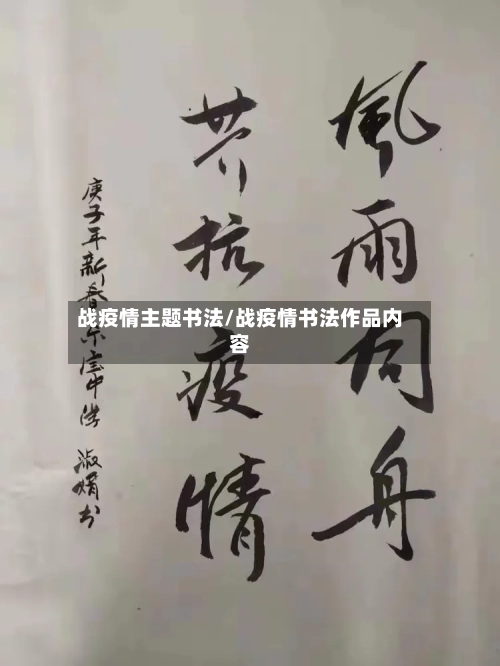 風雨同舟
共抗疫情
庚子年新春
淑娟书
战疫情主题书法/战疫情书法作品内
容